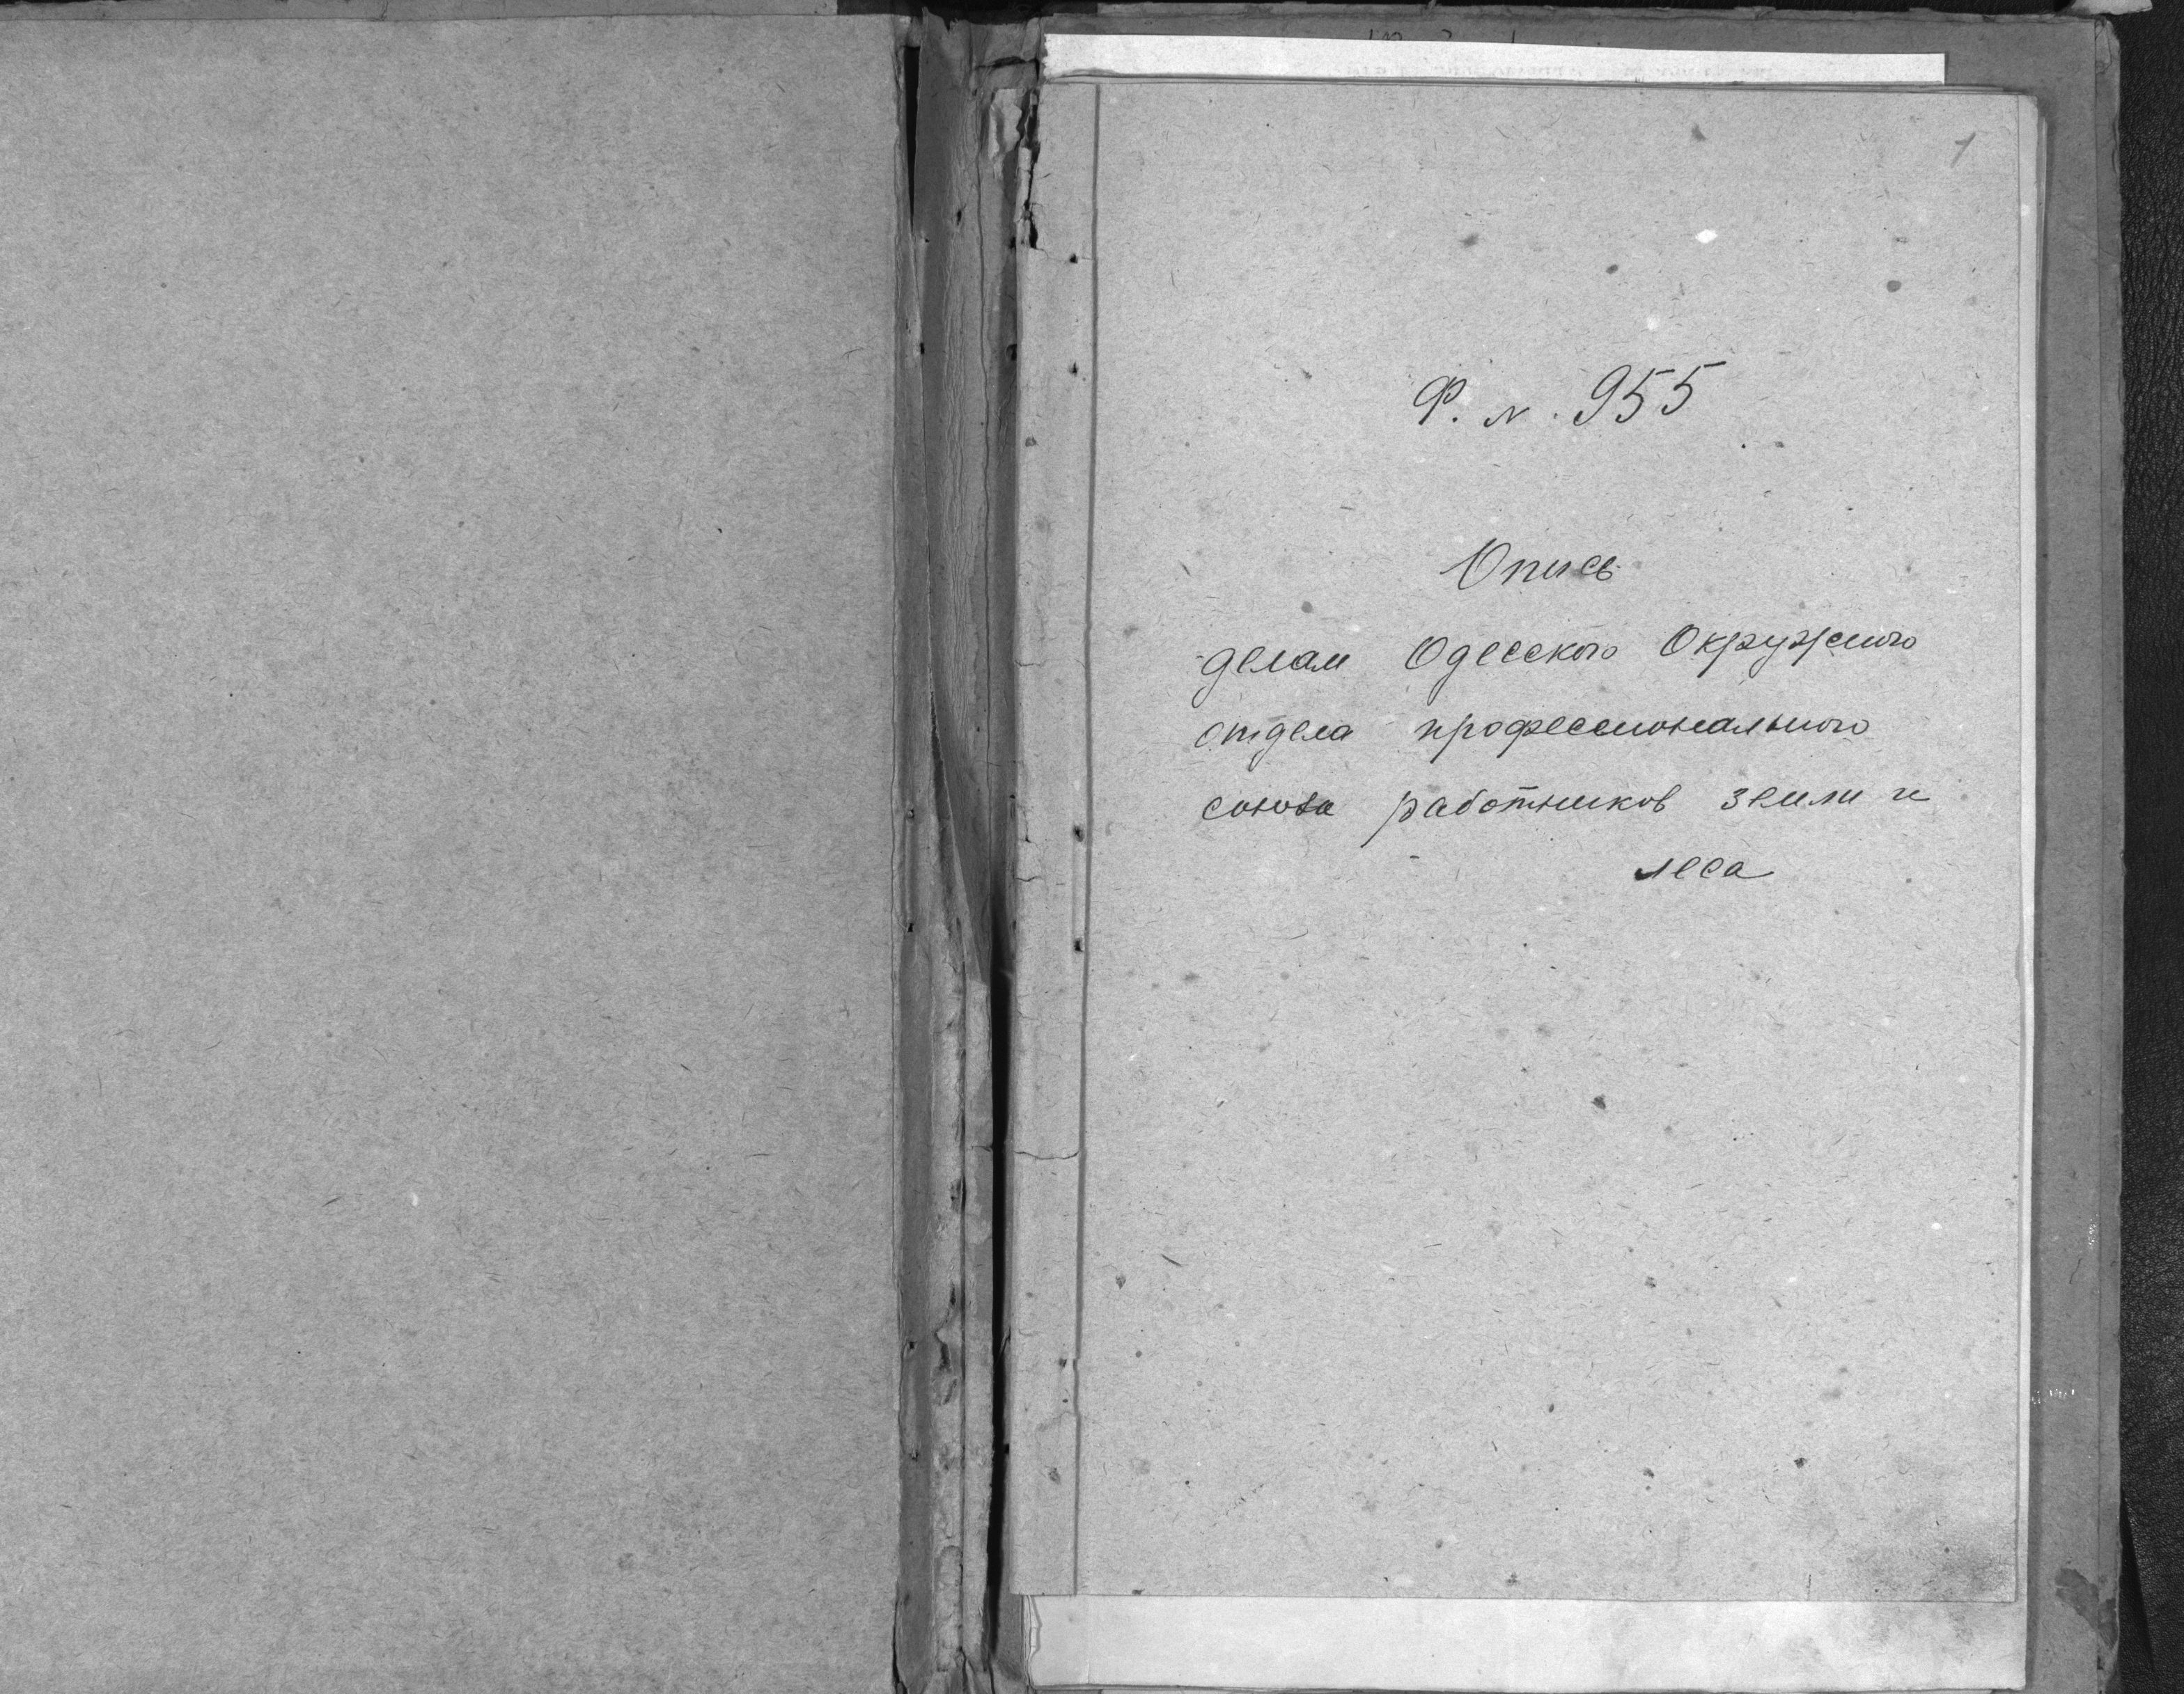 1
Ф. N. 955
Опись
делам Одесского Окружного
отдела профессионального
союза работников земли и
леса